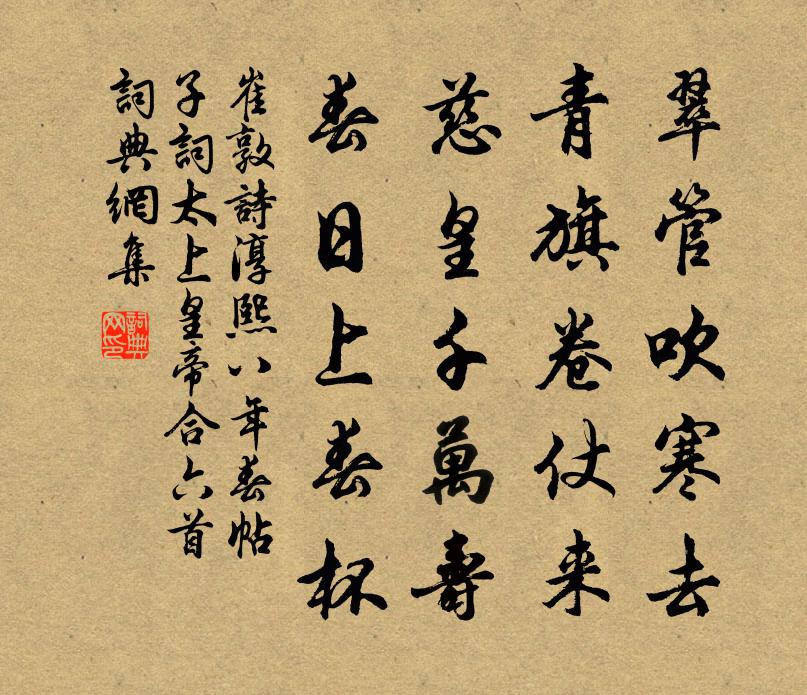 翠管吹寒去
青旗卷仗来
慈皇千萬壽
春日上春杯
崔敦詩淳熙八年春帖
子詞太上皇帝合六首
詞典網集
詞典网印